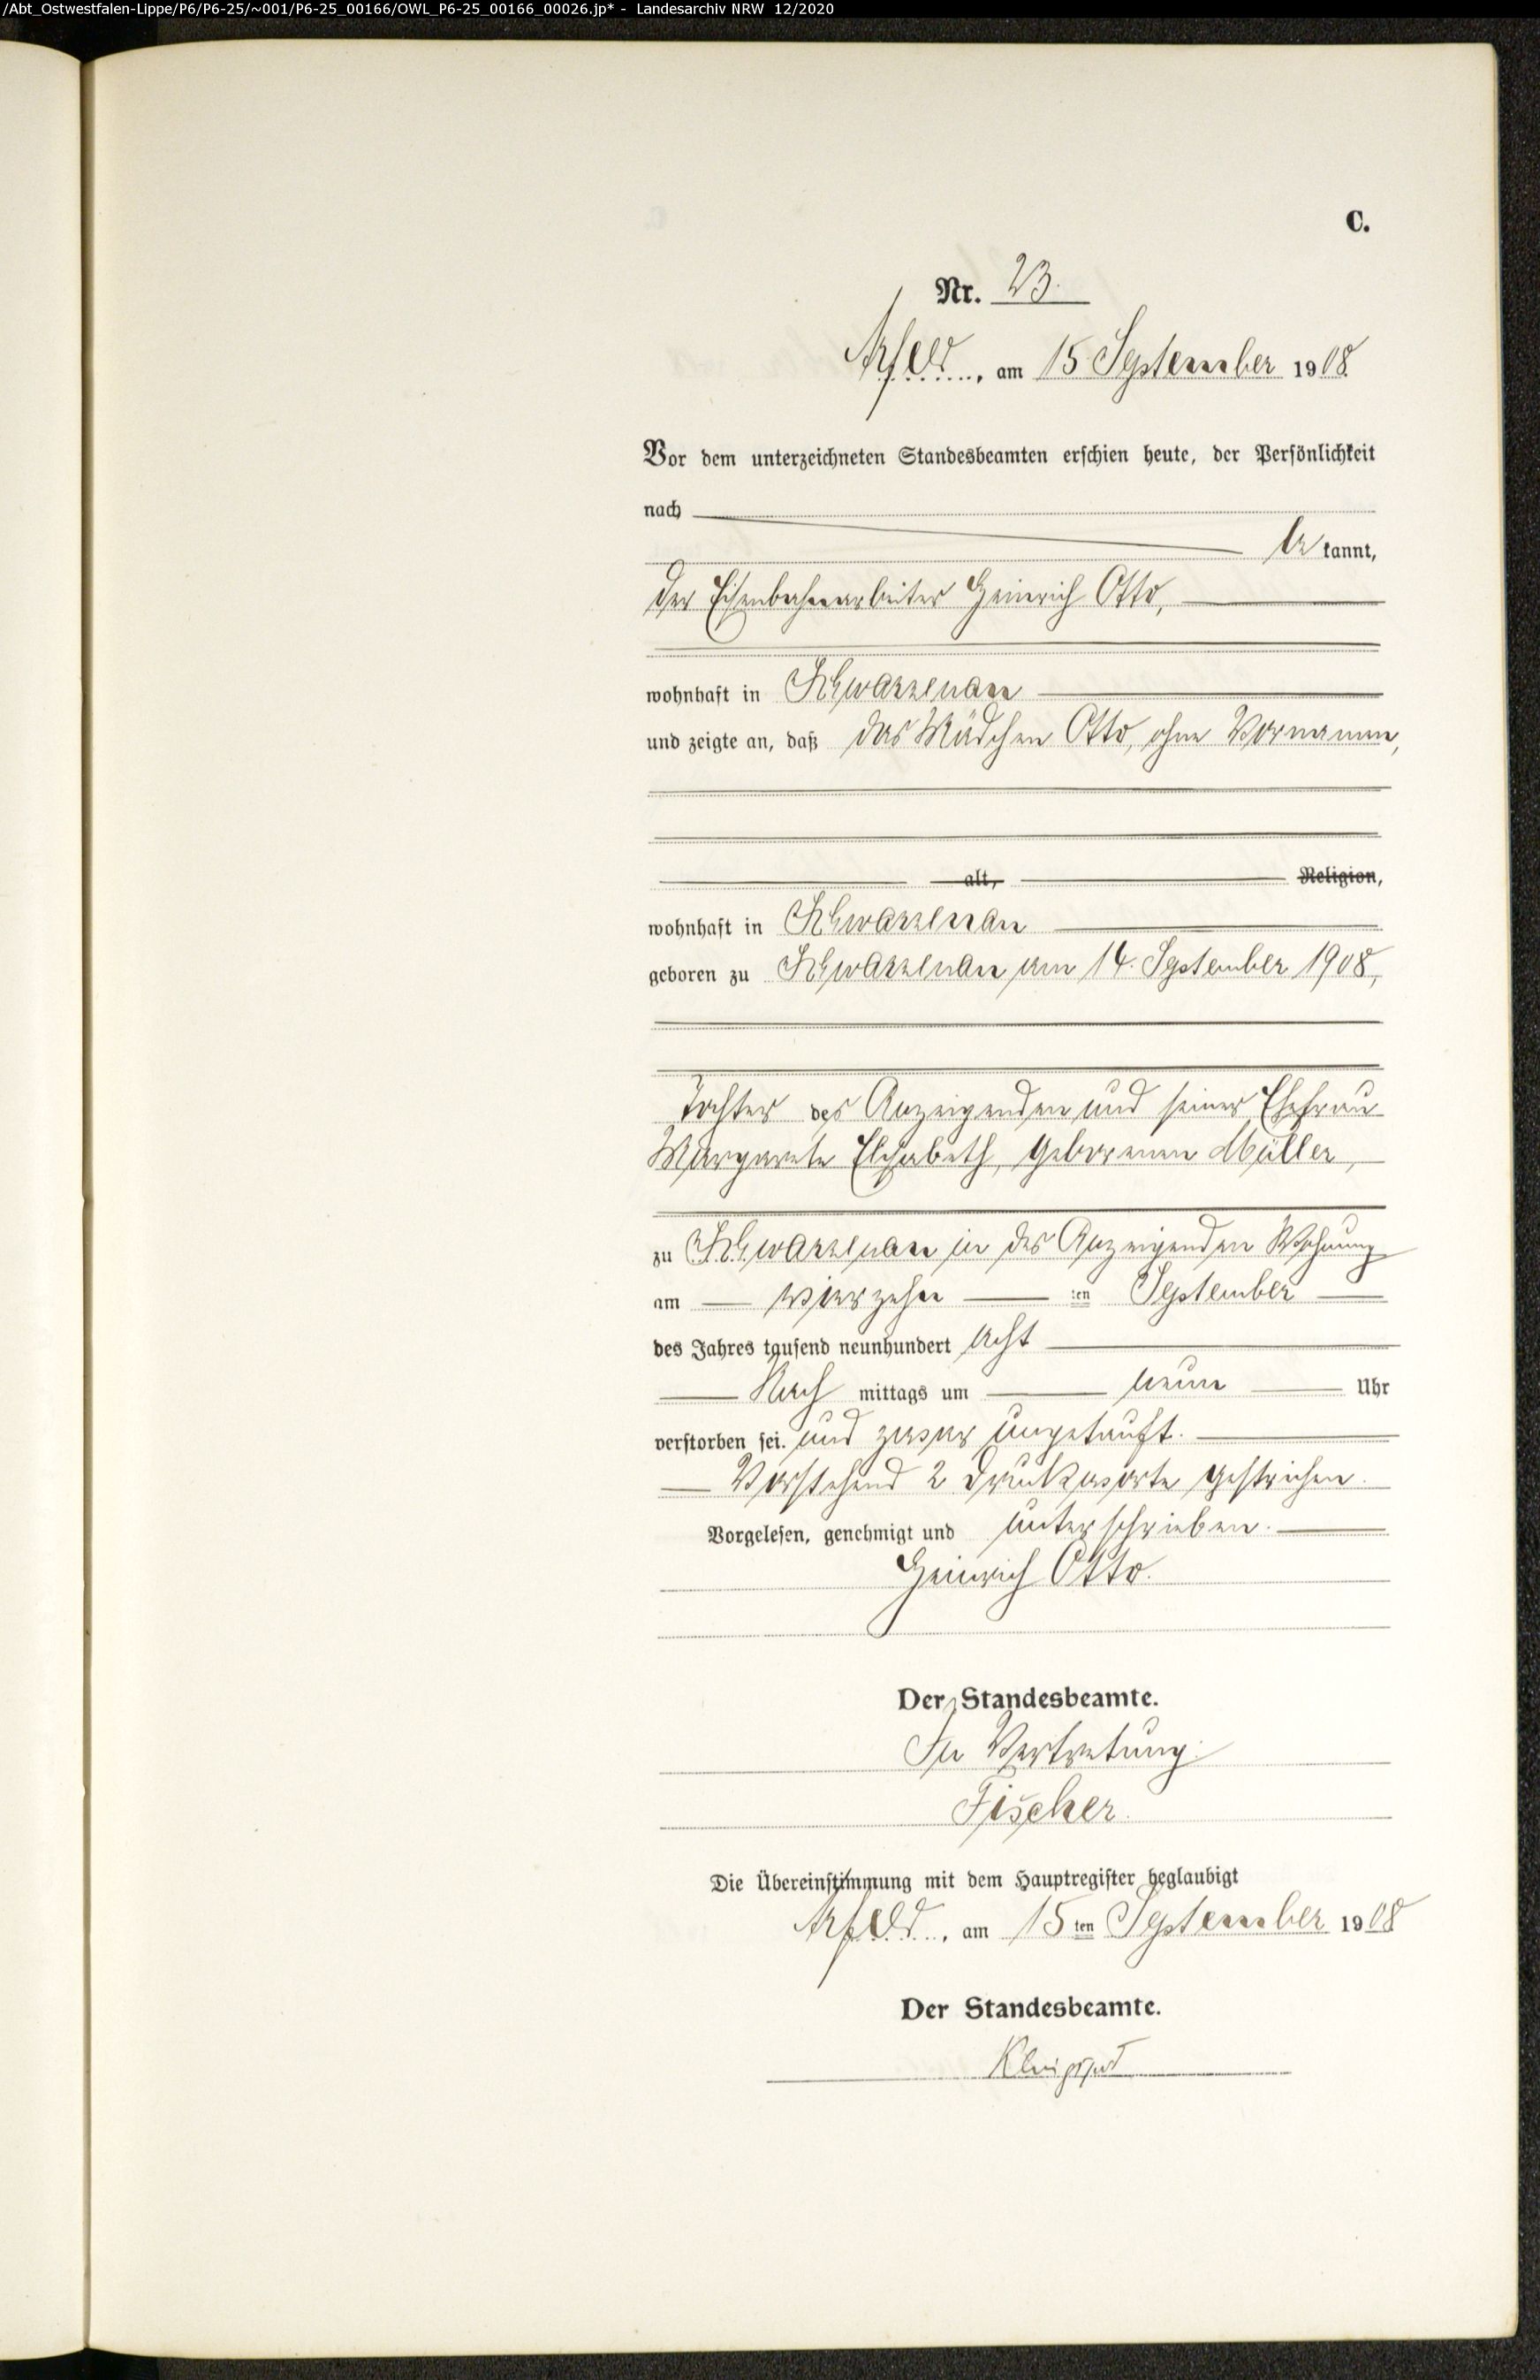 /Abt_Ostwestfalen-Lippe/P6/P6-25/~001/P6-25_00166/OWL_P6-25_00166_00026.jp* - Landesarchiv NRW 12/2020
C.
Nr. 23.
Arfeld, am 15. September 1908.
Vor dem unterzeichneten Standesbeamten erschien heute, der Persönlichkeit
nach
be kannt,
der Eisenbahnarbeiter Heinrich Otto,
wohnhaft in Schwarzenau
und zeigte an, daß das Mädchen Otto, ohne Vornamen,
alt, Religion,
wohnhaft in Schwarzenau
geboren zu Schwarzenau am 14. September 1908,
Tochter des Anzeigenden und seiner Ehefrau
Margarete Elisabeth, geborenen Müller,
zu Schwarzenau in des Anzeigenden Wohnung
am vierzehn ten September
des Jahres tausend neunhundert acht
Nach mittags um neun Uhr
verstorben sei. und zwar ungetauft.
Vorstehend 2 Druckworte gestrichen.
Vorgelesen, genehmigt und unterschrieben.
Heinrich Otto.
Der Standesbeamte.
In Vertretung:
Fischer.
Die Übereinstimmung mit dem Hauptregister beglaubigt
Arfeld, am 15 ten September 1908
Der Standesbeamte.